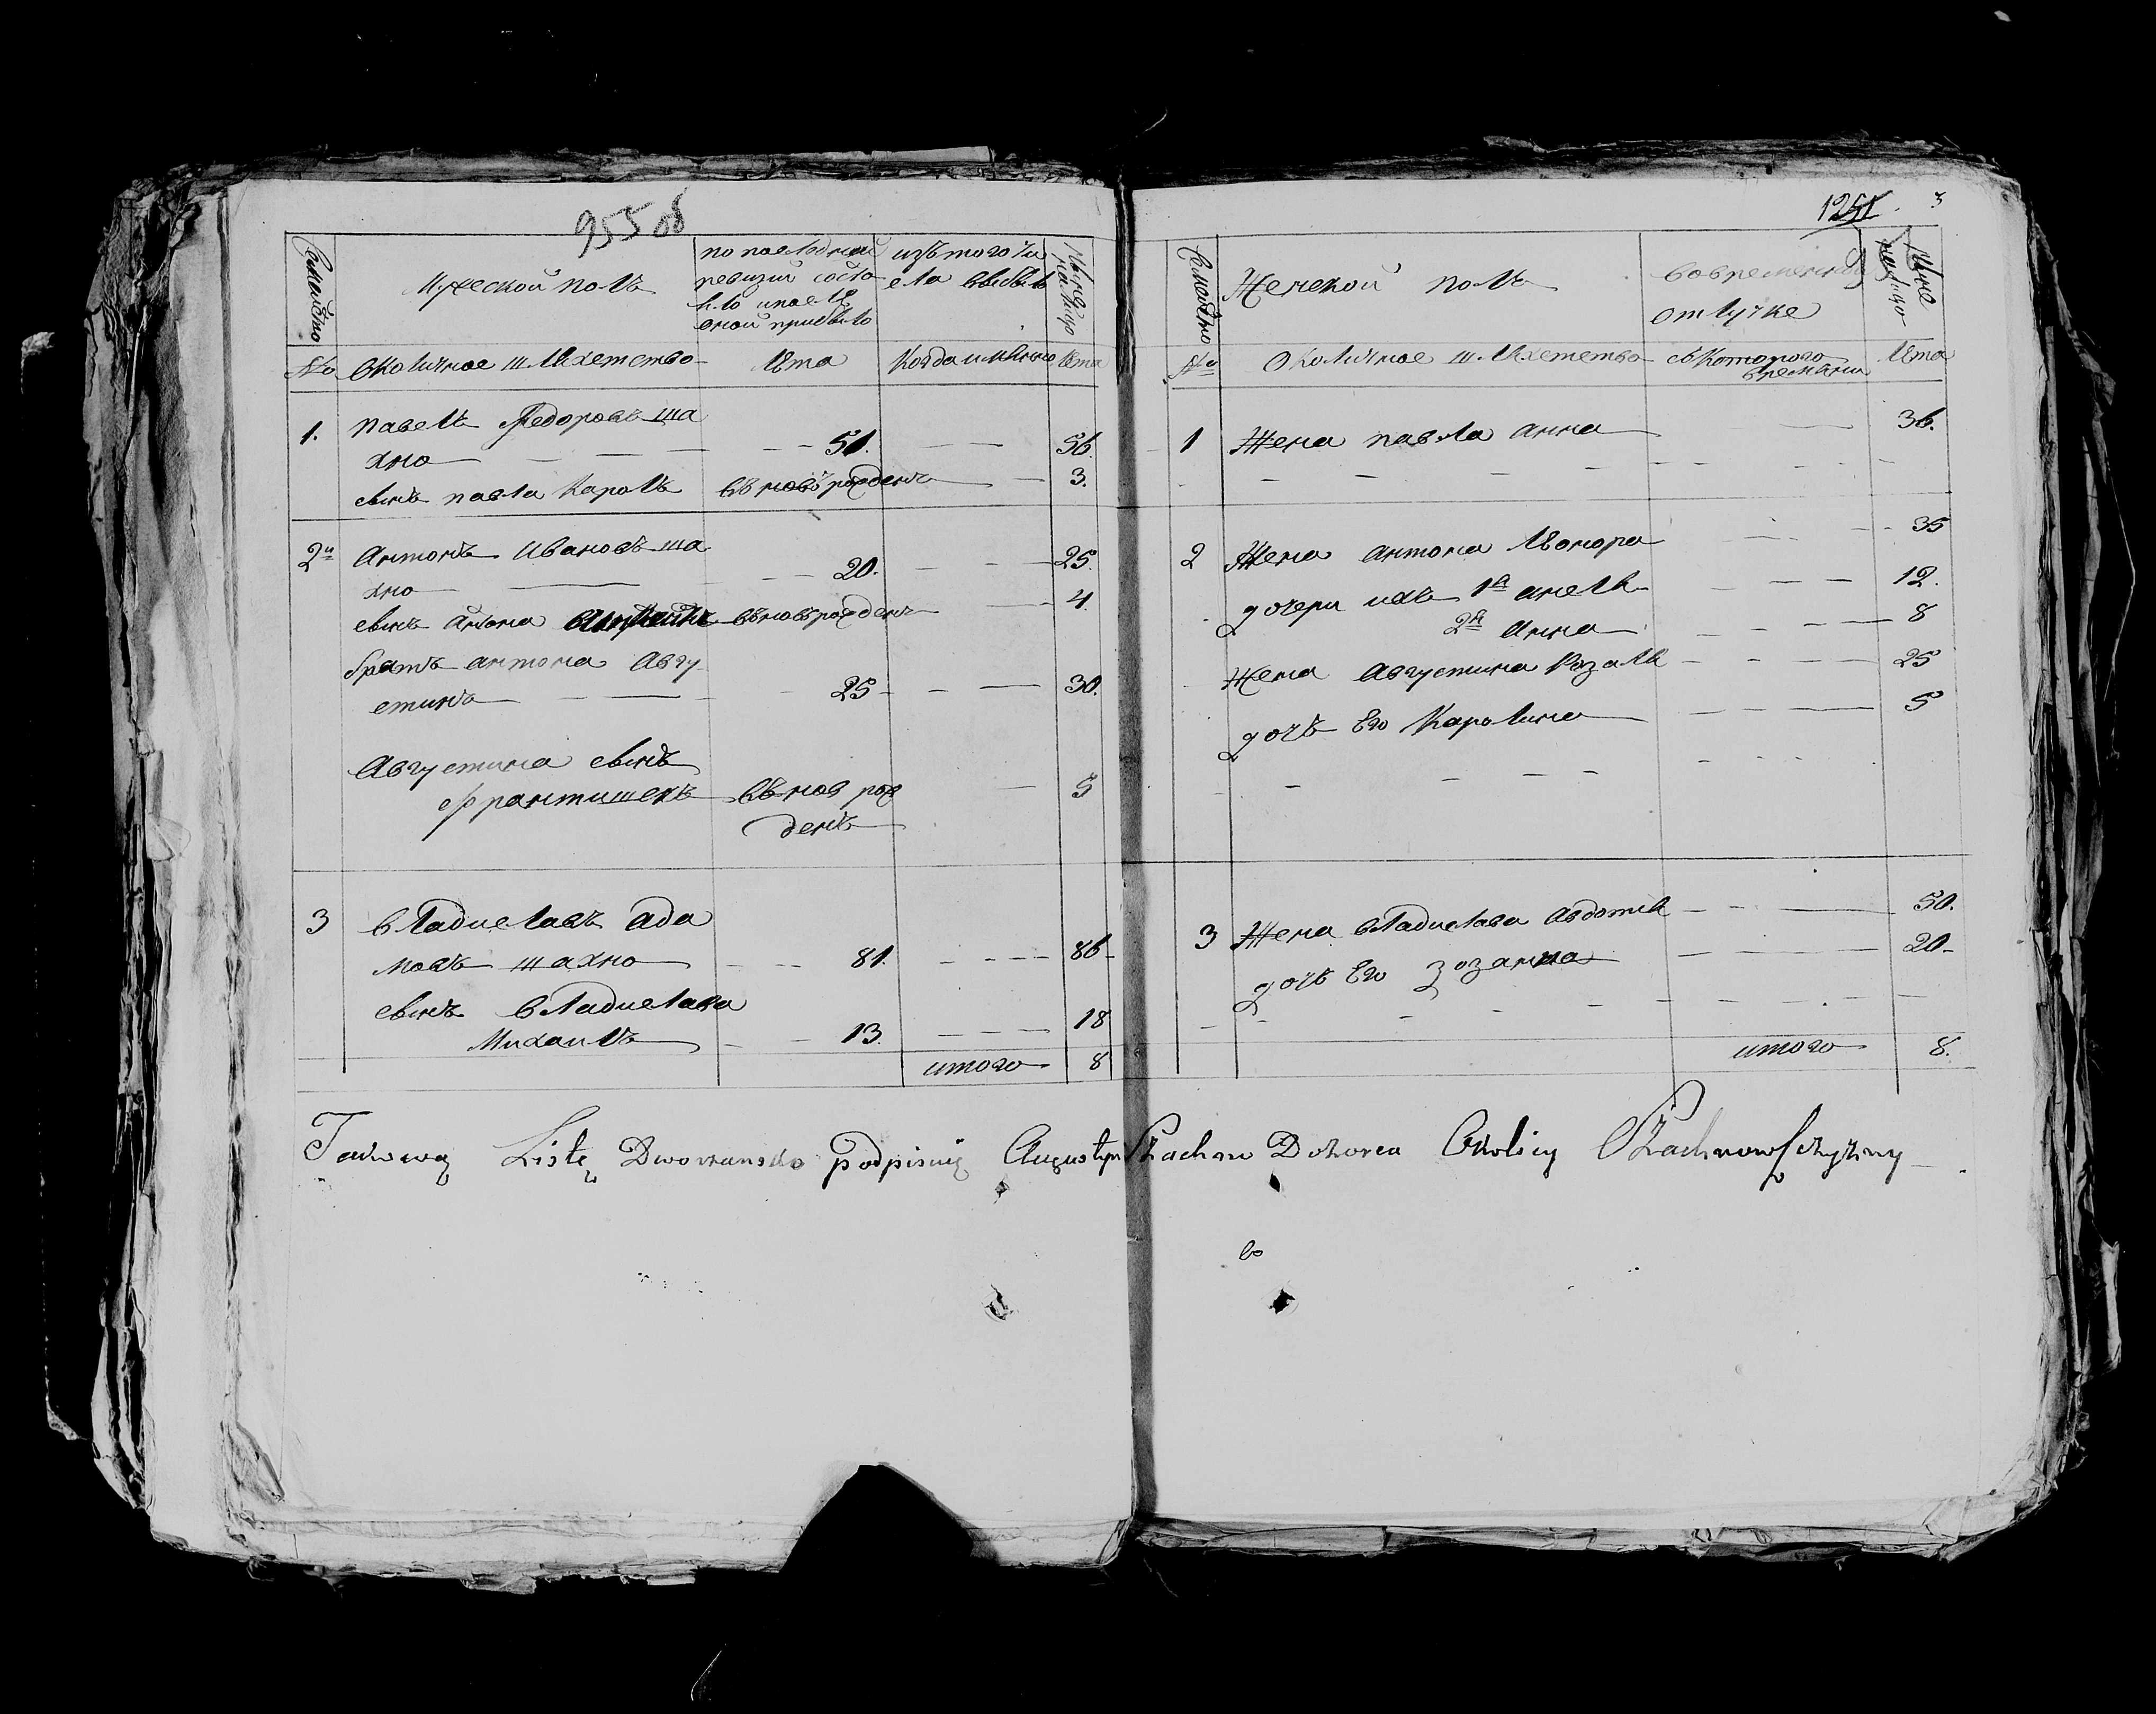 955 об
Семейство
Мужеской полъ
по последней
ревизии состо
яло и после
оной прибыло
изъ того чи
сла выбыло
Ныне
на лицо
№ околичное шляхетство
Лѣта
Когда именно
Лѣта
1. павелъ Федоровъ ша
хно 51. 56.
сынъ павла Кароль вновь рожденъ 3.
2й Антонъ Ивановъ ша
хно 20. 25.
сынъ Антона вновь рожденъ 4.
братъ антона Авгу
стинъ 25 30.
Августина сынъ
Франтишекъ вновь рож 5
денъ
3 владиславъ ада
мовъ шахно 81. 86
сынъ владислава
Михаилъ 13. 18
итого 8
1251. 3
Семейство
Женской полъ
вовременной
отлучке
Ныне
на лицо
№ околичное шляхетство
съ Которого
времени
Лѣта
1 Жена павла анна 36.
2 Жена антона Леонора 35
дочери ихъ 1я анеля 12.
2я анна 8
Жена августина Розалія 25
дочь Его Каролина 5
3 Жена владислава авдотія 50.
дочь Его Зозанна 20
итого 8.
Takową Listę Dworzansko podpisuię Augustyn Szachno Dozorca Okolicy Szachnowszczyzny
во